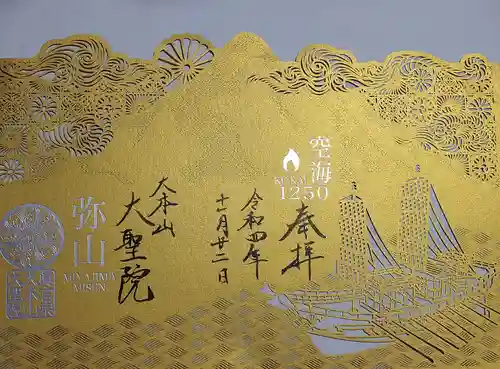 空海
KUKAI
1250
奉拝
令和四年
十一月廿二日
大本山
大聖院
弥山
MIYAJIMA
MISEN